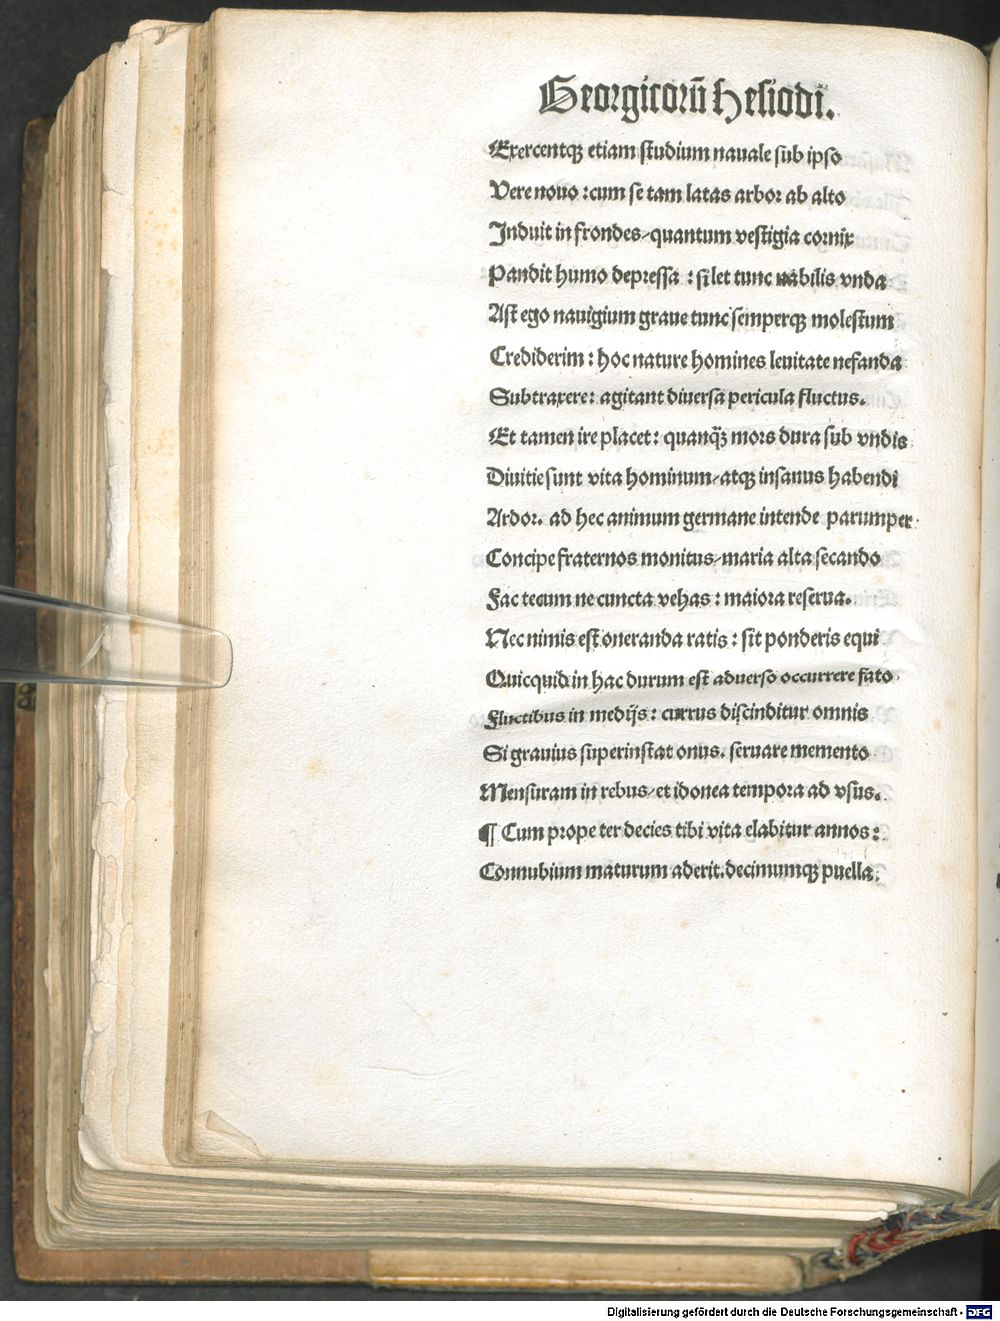 Georgicorū Hesiodi.
Exercentqꝫ etiam studium nauale sub ipso
Vere nouo : cum se tam latas arbor ab alto
Induit in frondes / quantum vestigia cornix
Pandit humo depressa : silet tunc nabilis vnda
Ast ego nauigium graue tunc semperqꝫ molestum
Crediderim : hoc nature homines leuitate nefanda
Subtraxere : agitant diuersa pericula fluctus.
Et tamen ire placet : quanqꝫ̄ mors dura sub vndis
Diuitie sunt vita hominum / atqꝫ insanus habendi
Ardor. ad hec animum germane intende parumper
Concipe fraternos monitus / maria alta secando
Fac tecum ne cuncta vehas : maiora reserua.
Nec nimis est oneranda ratis : sit ponderis equi
Quicquid in hac durum est aduerso occurrere fato
Fluctibus in medijs : currus discinditur omnis
Si grauius superinstat onus. seruare memento
Mensuram in rebus / et idonea tempora ad vsus.
¶ Cum prope ter decies tibi vita elabitur annos :
Connubium maturum aderit. decimumqꝫ puella.
Digitalisierung gefördert durch die Deutsche Forschungsgemeinschaft - DFG